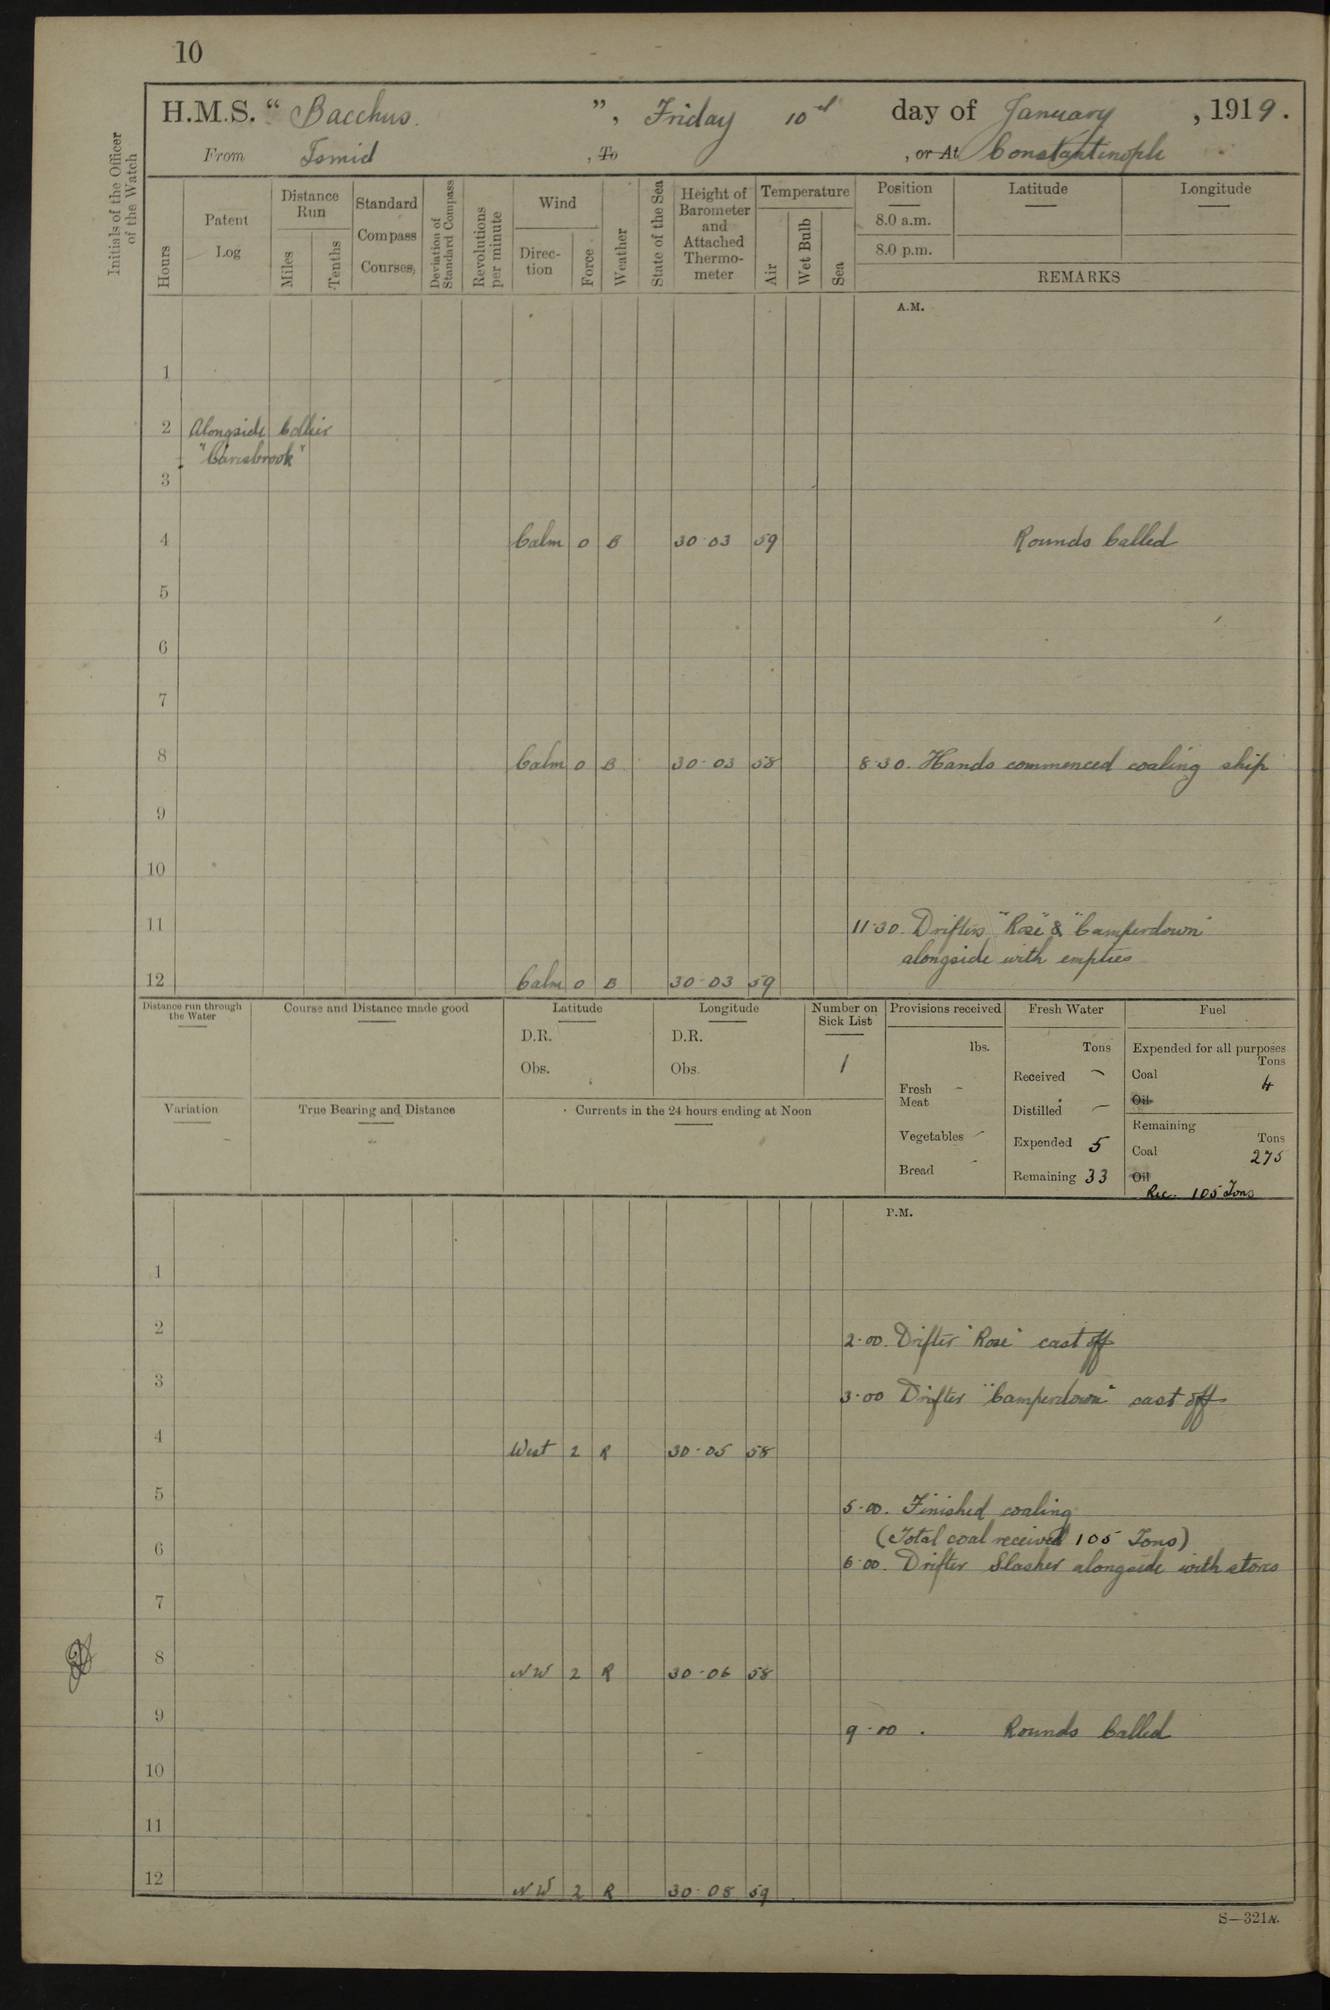 10
H.M.S. "Bacchus.", Friday 10th day of January, 1919.
From Ismid, To , or At Constantinople
Initials of the Officer of the Watch
Hours
Patent Log
Distance Run
Miles
Tenths
Standard Compass Courses,
Deviation of Standard Compass
Revolutions per minute
Wind
Direction
Force
Weather
State of the Sea
Height of Barometer and Attached Thermometer
Temperature
Air
Wet Bulb
Sea
Position Latitude Longitude
8.0 a.m.
8.0 p.m.
REMARKS
A.M.
1
2 Alongside Collier
"Carisbrook"
3
4 Calm 0 B 30·03 59 Rounds Called
5
6
7
8 Calm 0 B 30·03 58 8·30. Hands commenced coaling ship
9
10
11 11·30. Drifters "Rose" & "Camperdown"
alongside with empties
12 Calm 0 B 30·03 59
Distance run through the Water
Course and Distance made good
Latitude
D.R.
Obs.
Longitude
D.R.
Obs.
Number on Sick List
1
Provisions received
lbs.
Fresh Meat -
Vegetables -
Bread -
Fresh Water
Tons
Received -
Distilled -
Expended 5
Remaining 33
Fuel
Expended for all purposes
Tons
Coal 4
Oil
Remaining
Tons
Coal 275
Oil
Rec. 105 Tons
Variation
True Bearing and Distance
Currents in the 24 hours ending at Noon
P.M.
1
2 2·00. Drifter "Rose" cast off
3 3·00 Drifter "Camperdown" cast off
4 West 2 R 30·05 58
5 5·00. Finished coaling
(Total coal received 105 Tons)
6 6·00. Drifter Slasher alongside with stores
7
8 NW 2 R 30·06 58
9 9·00. Rounds Called
10
11
12 NW 2 R 30·08 59
S—321N.